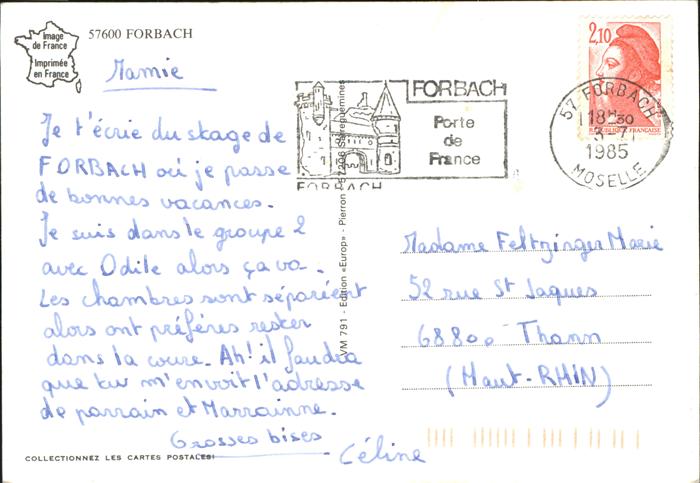 Image
de France
Imprimée
en France
57600 FORBACH
Mamie
Je t'écrie du skage de
FORBACH où je passe
de bonnes vacances.
Je suis dans le groupe 2
avec Odile alors ça va.
Les chambres sont séparéent
alors ont préféres rester
dans la coure. Ah! il faudra
que tu m'envoit l'adresse
de parrain et Marrainne.
Grosses bises
Céline
COLLECTIONNEZ LES CARTES POSTALES!
VM 791 - Edition «Europ» - Pierron - 57206 Sarreguemines
FORBACH
Porte
de
France
FORBACH
2,10
REPUBLIQUE FRANÇAISE
57 FORBACH
18H30
3-7
1985
MOSELLE
Madame Feltzinger Marie
52 rue St Jaques
68800 Thann
(Haut-RHIN)